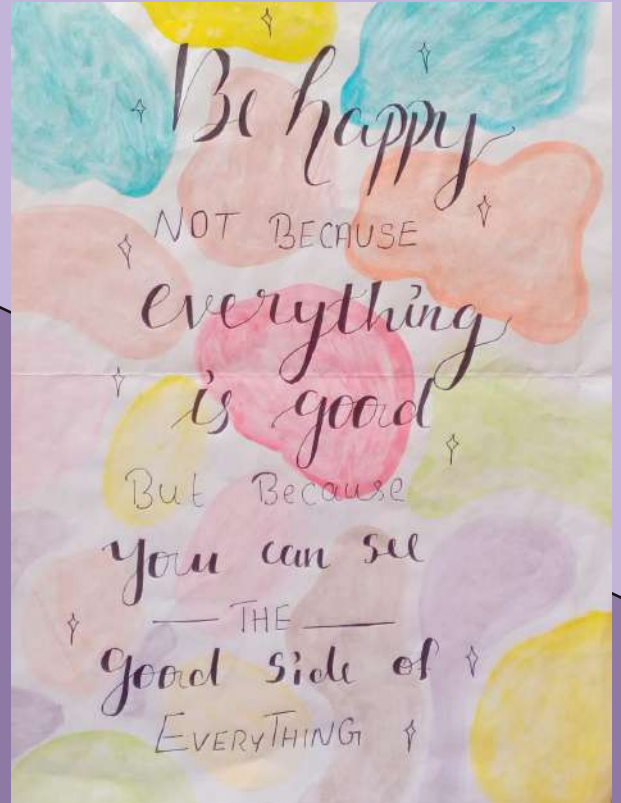 Be happy
NOT BECAUSE
everything
is good
But Because
you can see
THE
good side of
EVERYTHING